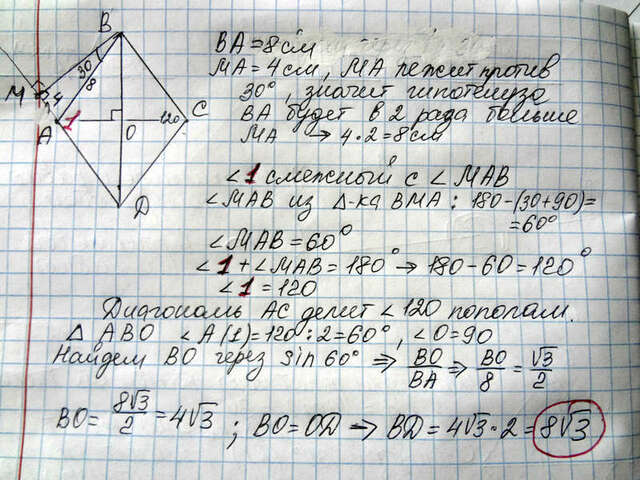 B
30
8
M
4
A
1
O
120
C
D
BA = 8 см
MA = 4 см, MA лежит против
30°, значит гипотенуза
BA будет в 2 раза больше
MA → 4·2 = 8 см
∠1 смежный с ∠MAB
∠MAB из Δ-ка BMA: 180-(30+90)=
=60°
∠MAB = 60°
∠1 + ∠MAB = 180° → 180-60 = 120°
∠1 = 120
Диагональ AC делит ∠120 пополам.
Δ ABO ∠A(1) = 120:2 = 60°, ∠O = 90
Найдем BO через sin 60° ⇒ BO/BA ⇒ BO/8 = √3/2
BO = 8√3/2 = 4√3 ; BO = OD → BD = 4√3·2 = 8√3